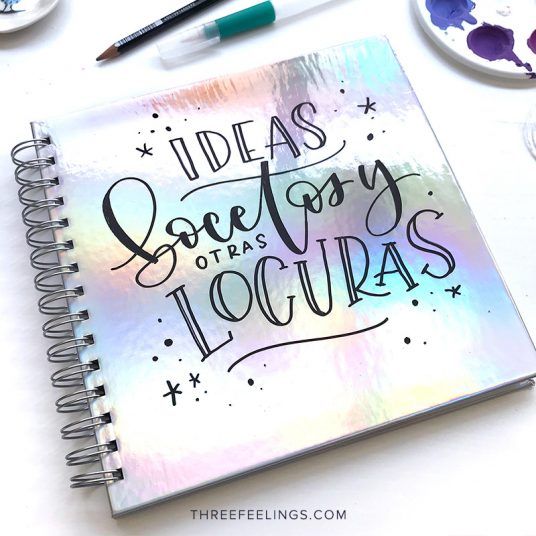 IDEAS
Bocetos y
OTRAS
LOCURAS
THREEFEELINGS.COM